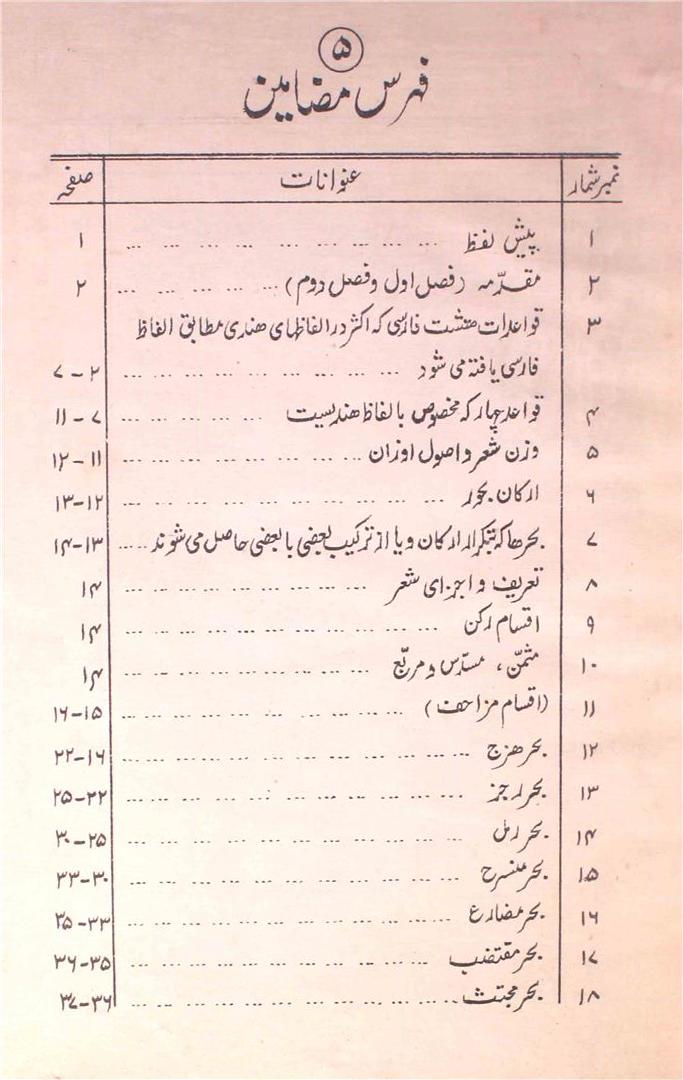 ۵
فہرس مضامین
نمبر شمار عنوانات صفحہ
۱ پیش لفظ ... ... ... ... ... ... ... ... ۱
۲ مقدّمہ (فصل اول و فصل دوم) ... ... ... ... ... ۲
۳ قواعدات هشت فارسی کہ اکثر در الفاظهای هندی مطابق الفاظ
فارسی یافتہ می شود ... ... ... ... ... ... ... ۲-۷
۴ قواعد چهار کہ مخصوص با لفاظ هندیست ... ... ... ... ۷-۱۱
۵ وزن شعر و اصول اوزان ... ... ... ... ... ... ۱۱-۱۲
۶ ارکان بحور ... ... ... ... ... ... ... ... ۱۲-۱۳
۷ بحرها کہ بتکرار ارکان و یا از ترکیب بعضی با بعضی حاصل می شوند ..... ۱۳-۱۴
۸ تعریف و اجزای شعر ... ... ... ... ... ... ۱۴
۹ اقسام رکن ... ... ... ... ... ... ... ... ۱۴
۱۰ مثمّن، مسدّس و مربّع ... ... ... ... ... ... ۱۴
۱۱ (اقسام مزاحف) ... ... ... ... ... ... ... ۱۵-۱۶
۱۲ بحر هزج ... ... ... ... ... ... ... ... ۱۶-۲۲
۱۳ بحر رجز ... ... ... ... ... ... ... ... ۲۲-۲۵
۱۴ بحر رمل ... ... ... ... ... ... ... ... ۲۵-۳۰
۱۵ بحر منسرح ... ... ... ... ... ... ... ... ۳۰-۳۳
۱۶ بحر مضارع ... ... ... ... ... ... ... ... ۳۳-۳۵
۱۷ بحر مقتضب ... ... ... ... ... ... ... ... ۳۵-۳۶
۱۸ بحر مجتث ... ... ... ... ... ... ... ... ۳۶-۳۷